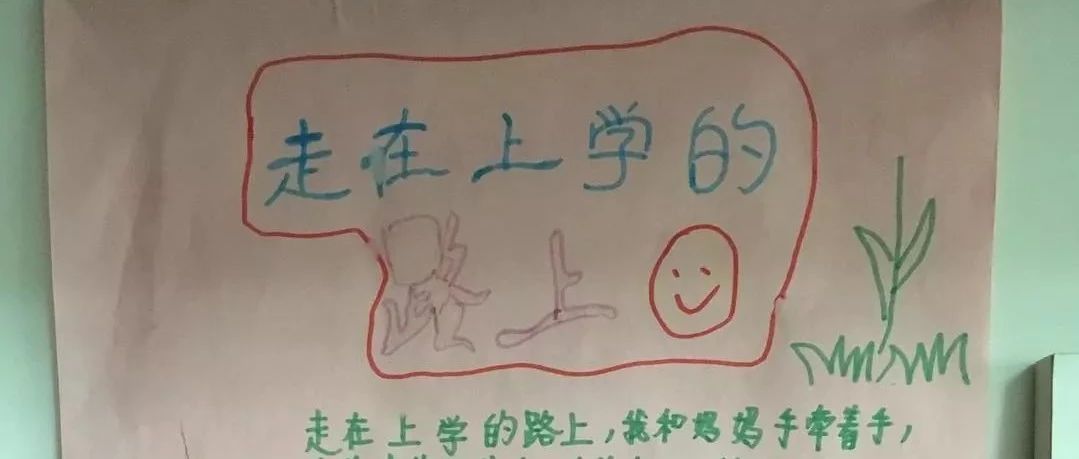 走在上学的
路上
走在上学的路上，我和妈妈手牵着手，